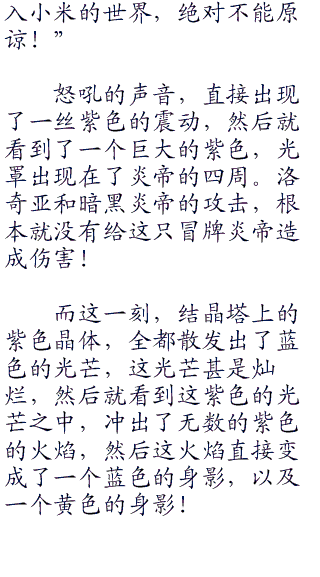 入小米的世界，绝对不能原
谅！”
怒吼的声音，直接出现
了一丝紫色的震动，然后就
看到了一个巨大的紫色，光
罩出现在了炎帝的四周。洛
奇亚和暗黑炎帝的攻击，根
本就没有给这只冒牌炎帝造
成伤害！
而这一刻，结晶塔上的
紫色晶体，全都散发出了蓝
色的光芒，这光芒甚是灿
烂，然后就看到这紫色的光
芒之中，冲出了无数的紫色
的火焰，然后这火焰直接变
成了一个蓝色的身影，以及
一个黄色的身影！